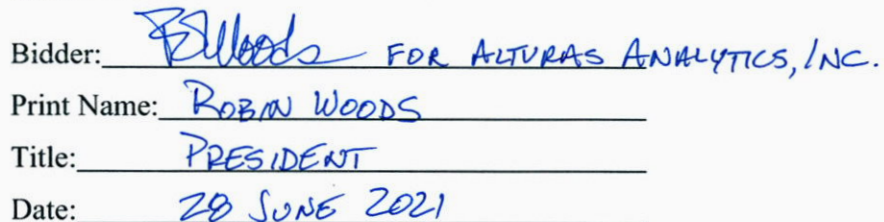 Bidder: RSWoods FOR ALTURAS ANALYTICS, INC.
Print Name: ROBIN WOODS
Title: PRESIDENT
Date: 28 JUNE 2021